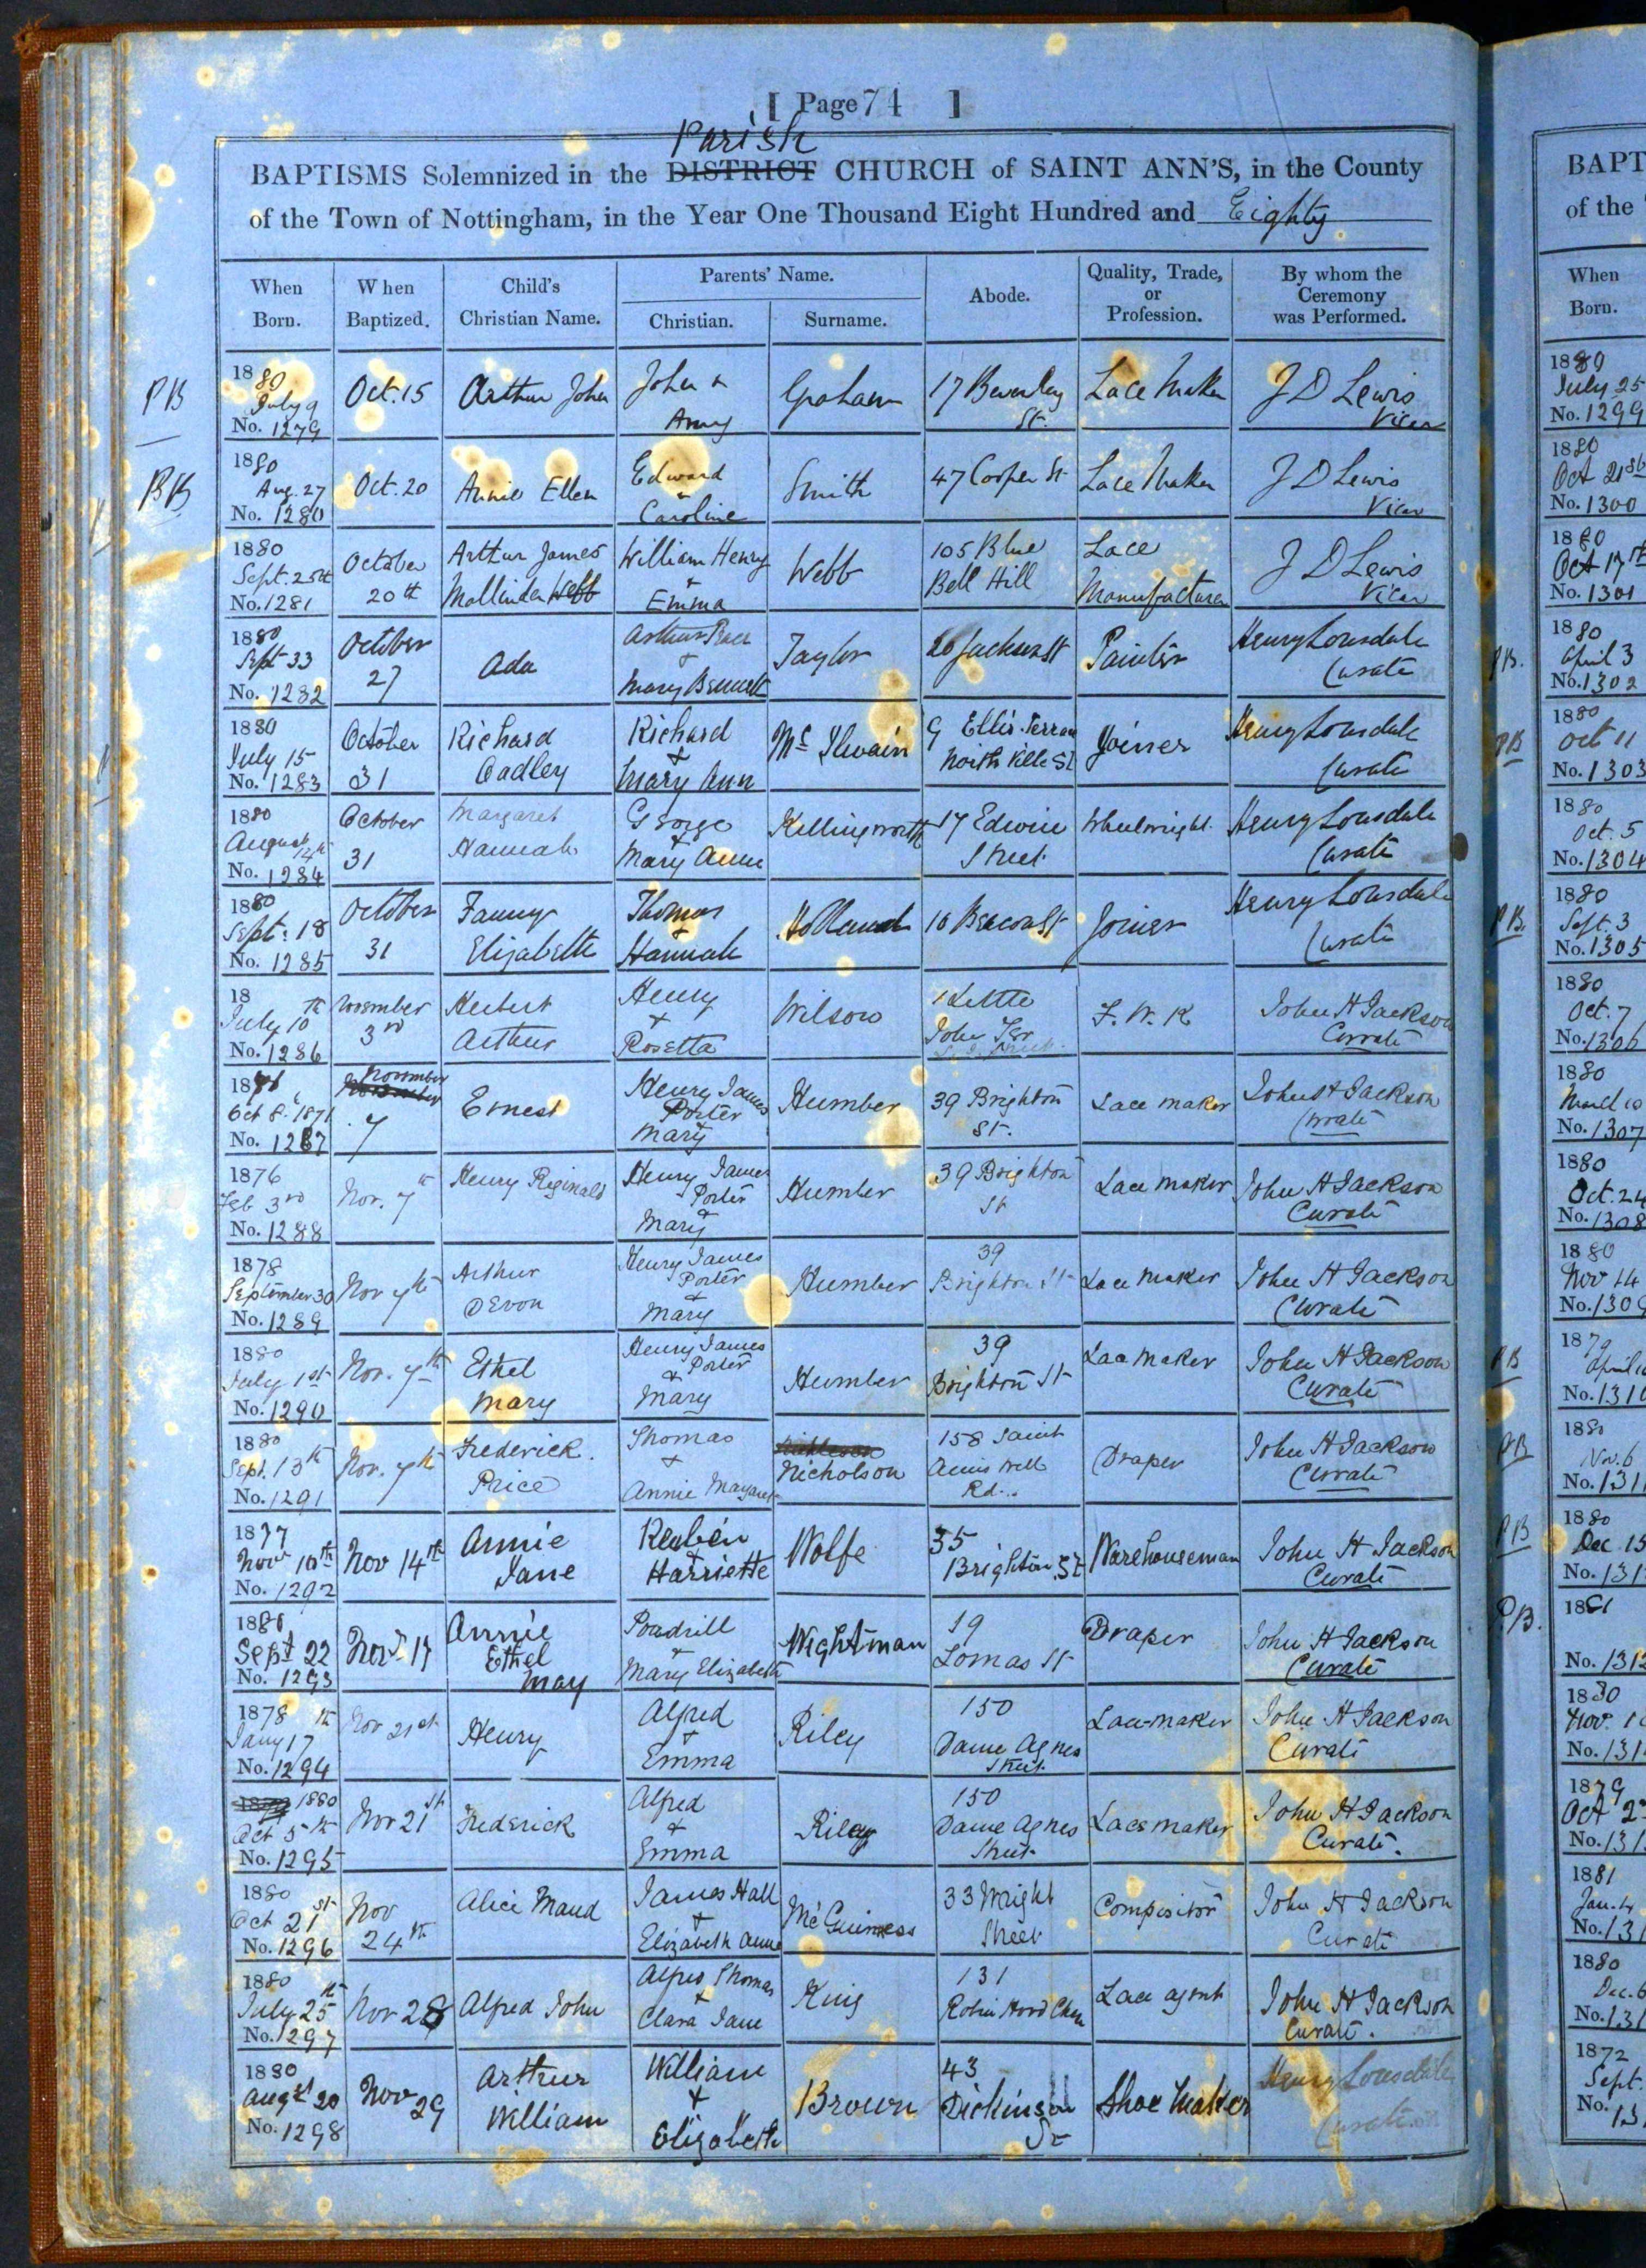 [ Page 74 ]
Parish
BAPTISMS Solemnized in the DISTRICT CHURCH of SAINT ANN'S, in the County
of the Town of Nottingham, in the Year One Thousand Eight Hundred and Eighty
When Born. When Baptized. Child's Christian Name. Parents' Name. Christian. Surname. Abode. Quality, Trade, or Profession. By whom the Ceremony was Performed.
PB 1880 July 9 No. 1279 Oct. 15 Arthur John John & Amy Graham 17 Beverley St. Lace Maker J D Lewis Vicar
PB 1880 Aug. 27 No. 1280 Oct. 20 Annie Ellen Edward & Caroline Smith 47 Cooper St Lace Maker J D Lewis Vicar
1880 Sept. 25th No. 1281 October 20th Arthur James Mollinder Webb William Henry & Emma Webb 105 Blue Bell Hill Lace Manufacturer J D Lewis Vicar
1880 Sept 33 No. 1282 October 27 Ada Arthur & Mary Bennett Taylor 20 St Painter Henry Lonsdale Curate
1880 July 15 No. 1283 October 31 Richard Oadley Richard & Mary Ann Mc Ilwain 9 Ellis Terrace Northville St Joiner Henry Lonsdale Curate
1880 August 14th No. 1284 October 31 Margaret Hannah George & Mary Anne Killingworth 17 Edwin Street Wheelwright. Henry Lonsdale Curate
1880 Sept. 18 No. 1285 October 31 Fanny Elizabeth Thomas & Hannah Holland 10 Beacon St Joiner Henry Lonsdale Curate
18 July 10th No. 1286 November 3rd Herbert Arthur Henry & Rosetta Wilson 1 Little John Ter F. W. K John H Jackson Curate
1871 Oct 8. 1871 No. 1287 November 7 Ernest Henry James Porter & Mary Humber 39 Brighton St. Lace maker John H Jackson Curate
1876 Feb 3rd No. 1288 Nov. 7th Henry Reginald Henry James Porter & Mary Humber 39 Brighton St Lace maker John H Jackson Curate
1878 September 30 No. 1289 Nov 7th Arthur Devon Henry James Porter & Mary Humber 39 Brighton St Lace maker John H Jackson Curate
1880 July 1st No. 1290 Nov. 7th Ethel Mary Henry James Porter & Mary Humber 39 Brighton St Lace maker John H Jackson Curate
1880 Sept. 13th No. 1291 Nov. 7th Frederick. Price Thomas & Annie Margaret Nicholson 158 Saint Anns Well Rd.. Draper John H Jackson Curate
1877 Nov 10th No. 1292 Nov 14th Annie Jane Reuben & Harriette Wolfe 35 Brighton St Warehouseman John H Jackson Curate
1880 Sept 22 No. 1293 Nov. 17 Annie Ethel May & Mary Elizabeth Wightman 19 Lomas St Draper John H Jackson Curate
1878 Jany 17th No. 1294 Nov 21st Henry Alfred & Emma Riley 150 Dame Agnes Street Lace-maker John H Jackson Curate
1880 Oct 5th No. 1295 Nov 21st Frederick Alfred & Emma Riley 150 Dame Agnes Street Lace maker John H Jackson Curate.
1880 Oct 21st No. 1296 Nov 24th Alice Maud James Hall & Elizabeth Anne McGuiness 33 Wright Street Compositor John H Jackson Curate
1880 July 25th No. 1297 Nov 28 Alfred John Alfred Thomas & Clara Jane King 131 Robin Hood Chase Lace agent John H Jackson Curate.
1880 Augst 20 No. 1298 Nov 29 Arthur William William & Elizabeth Brown 43 Dickinson St Shoe Maker Henry Lonsdale Curate
BAPT
of the
When
Born.
1880 July 25 No. 1299
1880 Oct 21st No. 1300
1880 Oct 17th No. 1301
PB. 1880 April 3 No. 1302
PB 1880 Oct 11 No. 1303
1880 Oct. 5 No. 1304
PB. 1880 Sept. 3 No. 1305
1880 Oct. 7 No. 1306
1880 March 10 No. 1307
1880 Oct. 24 No. 1308
1880 Nov 14 No. 1309
PB 1879 April No. 1310
PB 1880 Nov. 6 No. 131
PB 1880 Dec. 15 No. 131
P.B. 1881 No. 131
1880 Nov. No. 131
1879 Oct 2 No. 131
1881 Jan. 4 No. 131
1880 Dec. 6 No. 131
1872 Sept. No. 13